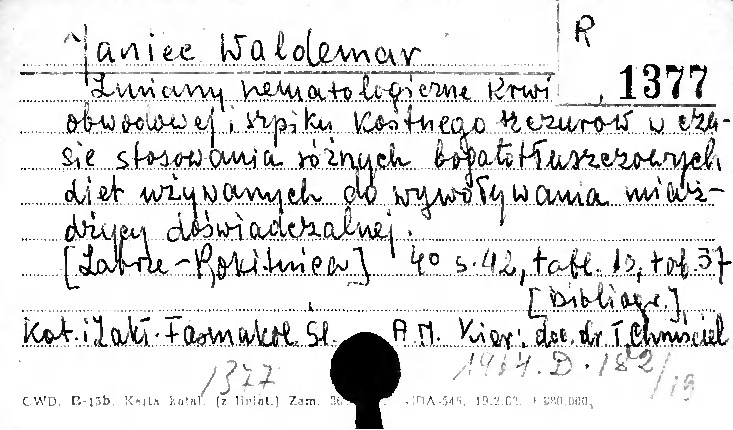 Janiec Waldemar
R
1377
Zmiany hematologiczne krwi
obwodowej i szpiku kostnego szczurów w cza-
sie stosowania różnych bogatotłuszczowych
diet używanych do wywoływania miaż-
dżycy doświadczalnej.
[Zabrze-Rokitnica] 4° s. 42, tabl. 13, tab. 37
[Bibliogr.]
Kat. i Zakł. Farmakol. Śl. A.M. Kier: doc. dr T. Chruściel
1377 1964.D.182/19
CWD. Karta katal. (z liniat.) Zam.